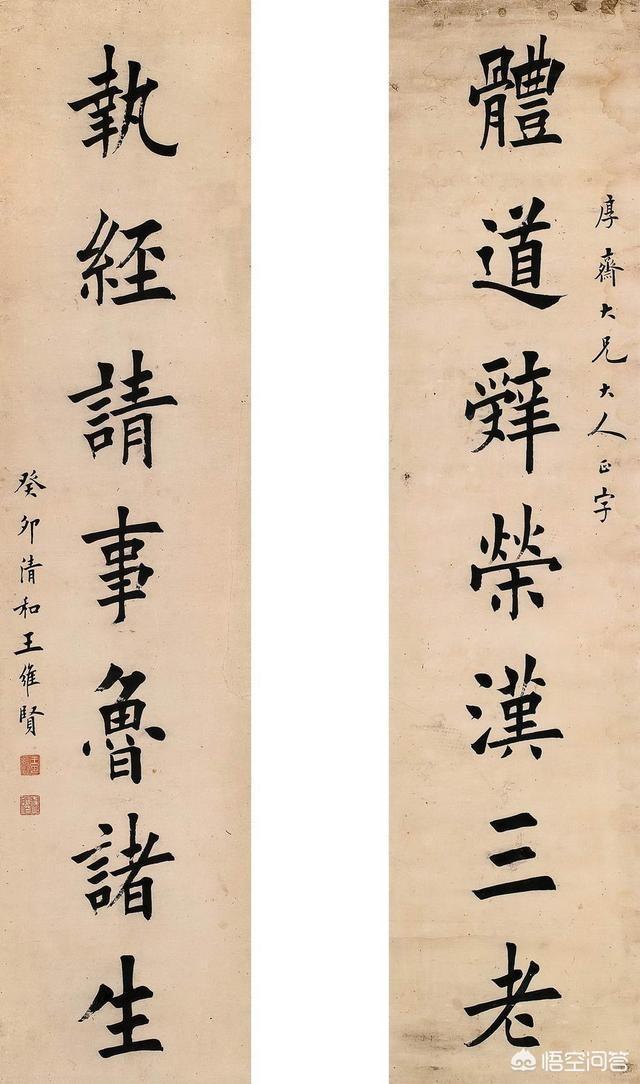 厚齋大兄大人正字
體道辭榮漢三老
執經請事魯諸生
癸卯清和王維賢
悟空问答